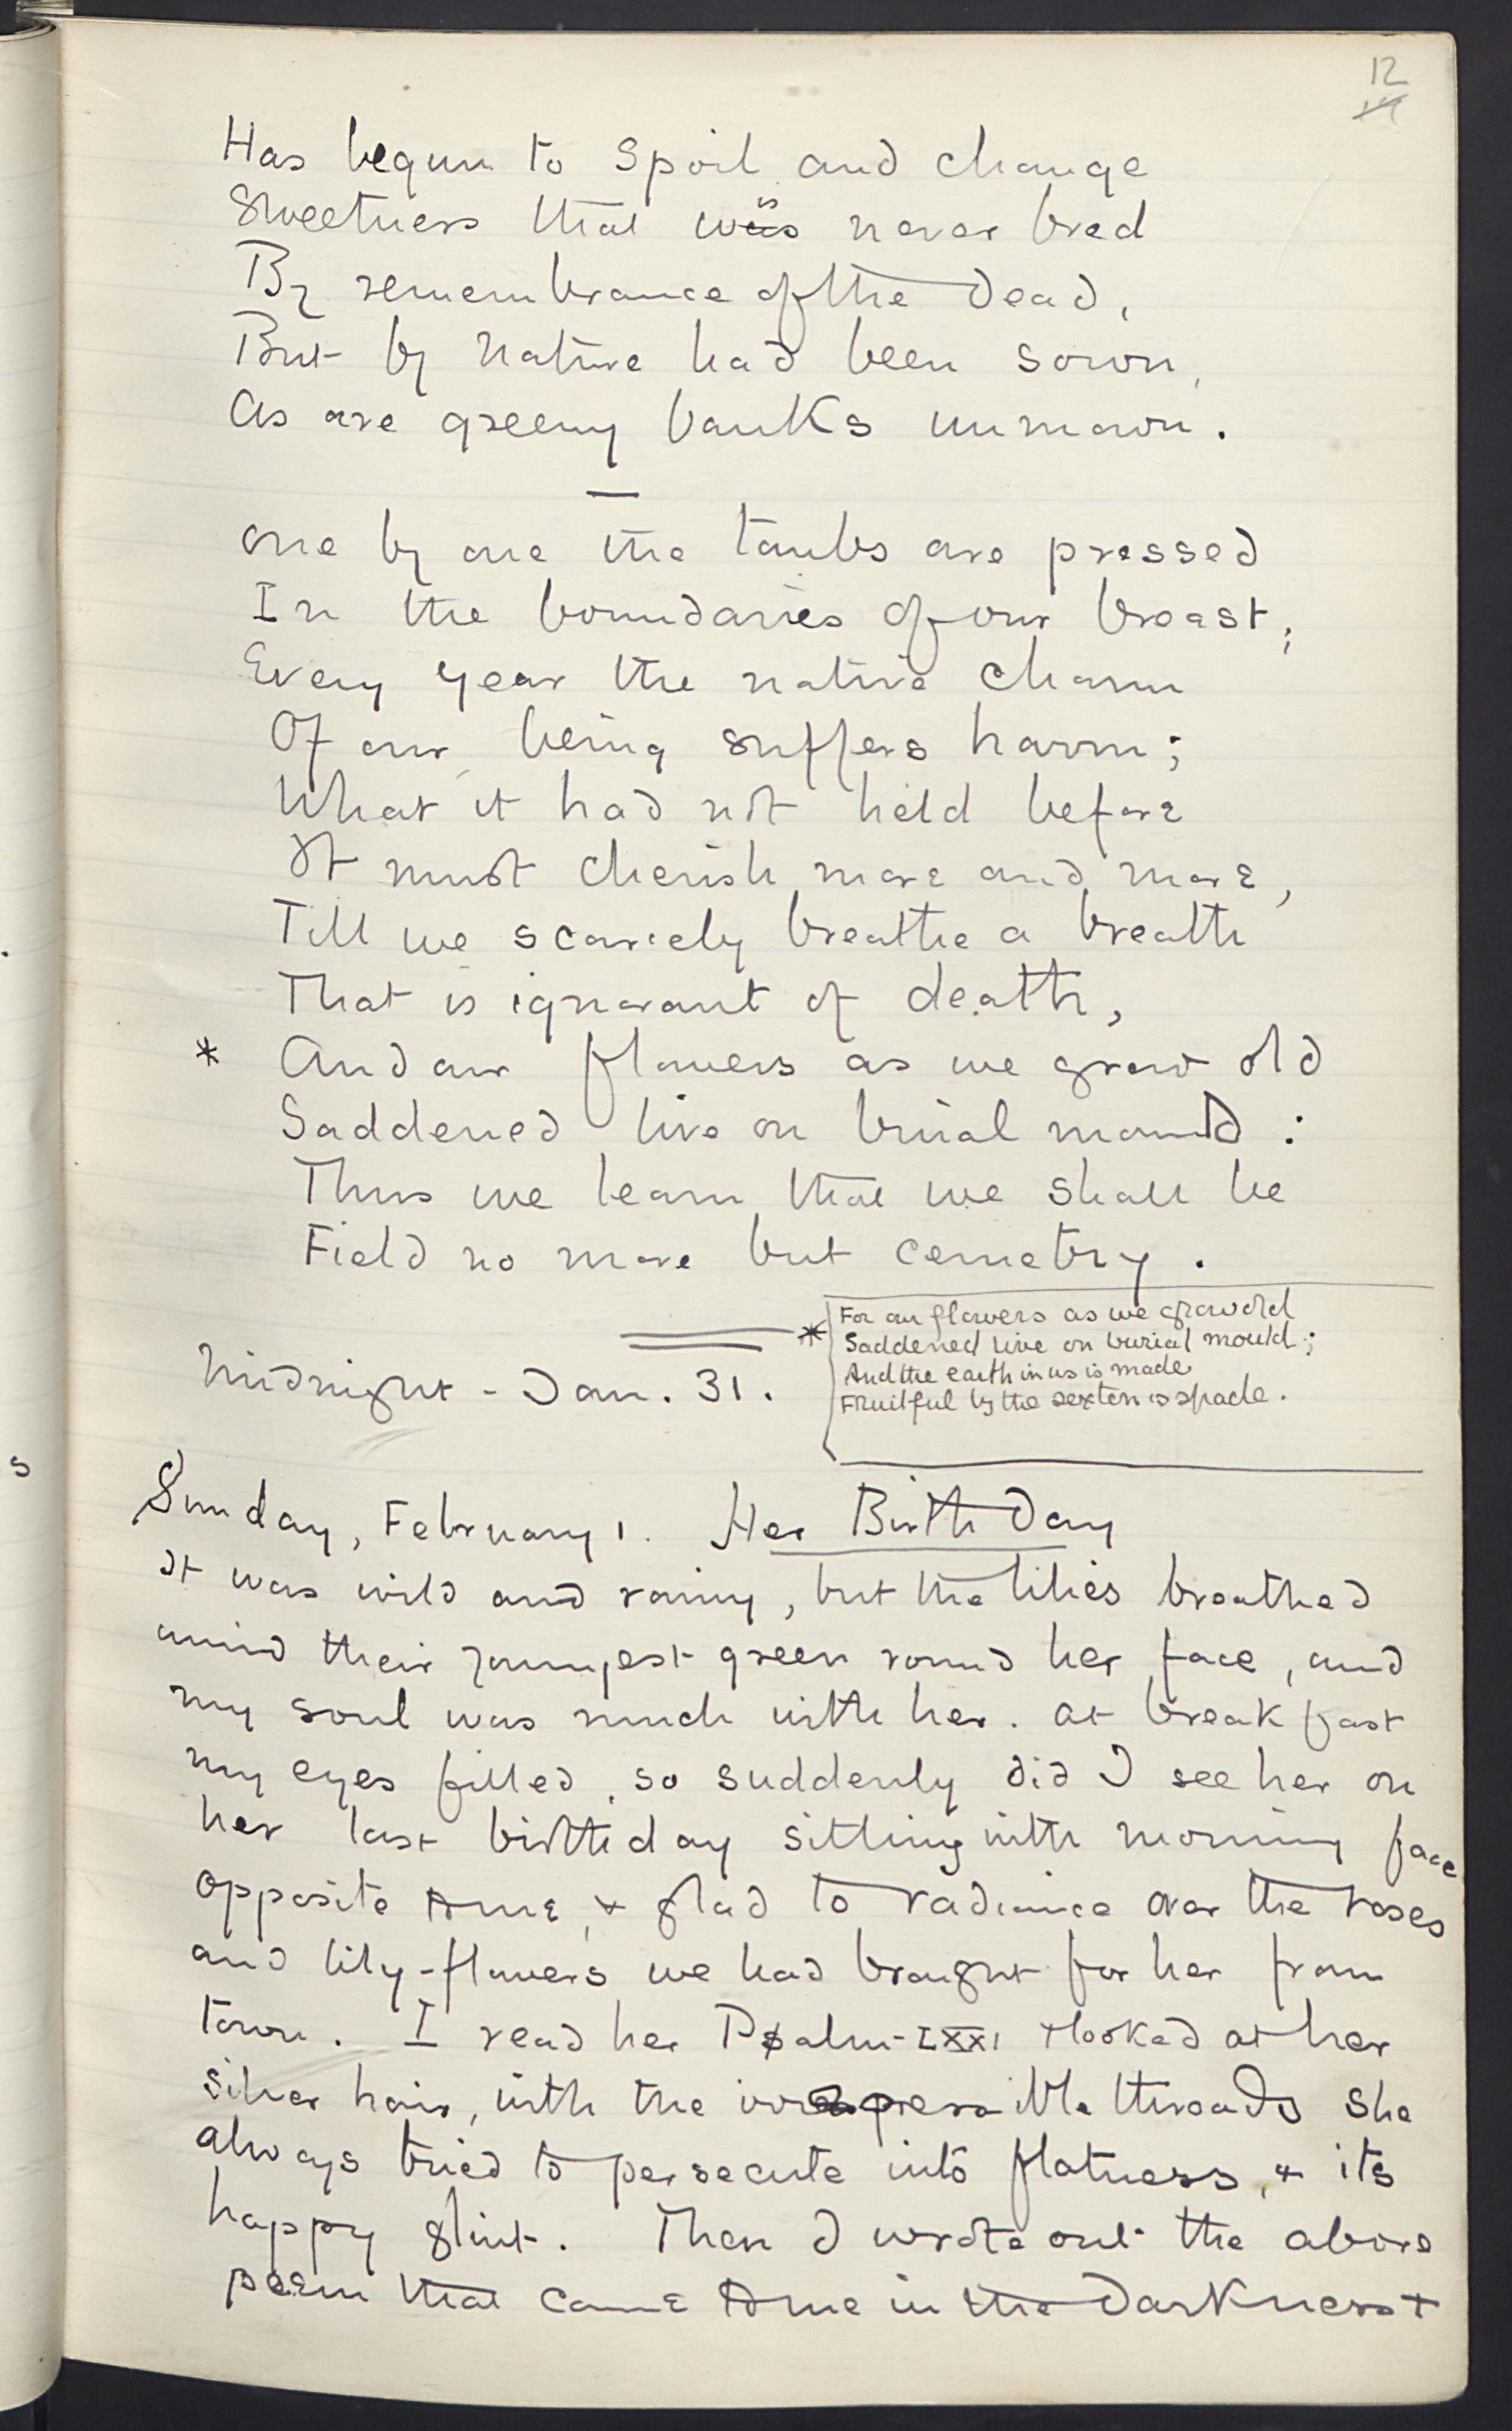 12
Has begun to spoil and change
Sweetness that was is never bred
By remembrance of the dead,
But by nature had been sown,
As are greeny banks unmown.
One by one the tombs are pressed
In the boundaries of our breast;
Every year the native charm
Of our being suffers harm;
What it had not held before
It must cherish more and more,
Till we scarcely breathe a breath
That is ignorant of death,
* And our flowers as we grow old
Saddened live on burial mould:
Thus we learn that we shall be
Field no more but cemetry.
* For our flowers as we grow old
Saddened live on burial mould;
And the earth in us is made
Fruitful by the sexton's spade.
Midnight - Jan. 31.
Sunday, February 1. Her Birth Day
It was wild and rainy, but the lilies breathed
amid their youngest green round her face, and
my soul was much with her. At breakfast
my eyes filled, so suddenly did I see her on
her last birthday sitting with morning face
opposite to me, & glad to radiance over the roses
and lily-flowers we had brought for her from
town. I read her Psalm LXXI & looked at her
silver hair, with the irrepressible threads she
always tried to persecute into flatness, & its
happy glint. Then I wrote out the above
poem that came to me in the darkness &